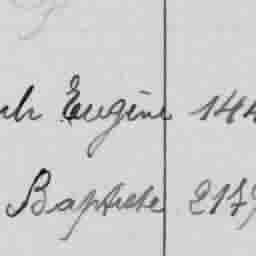 Eugène 144
Baptiste 217